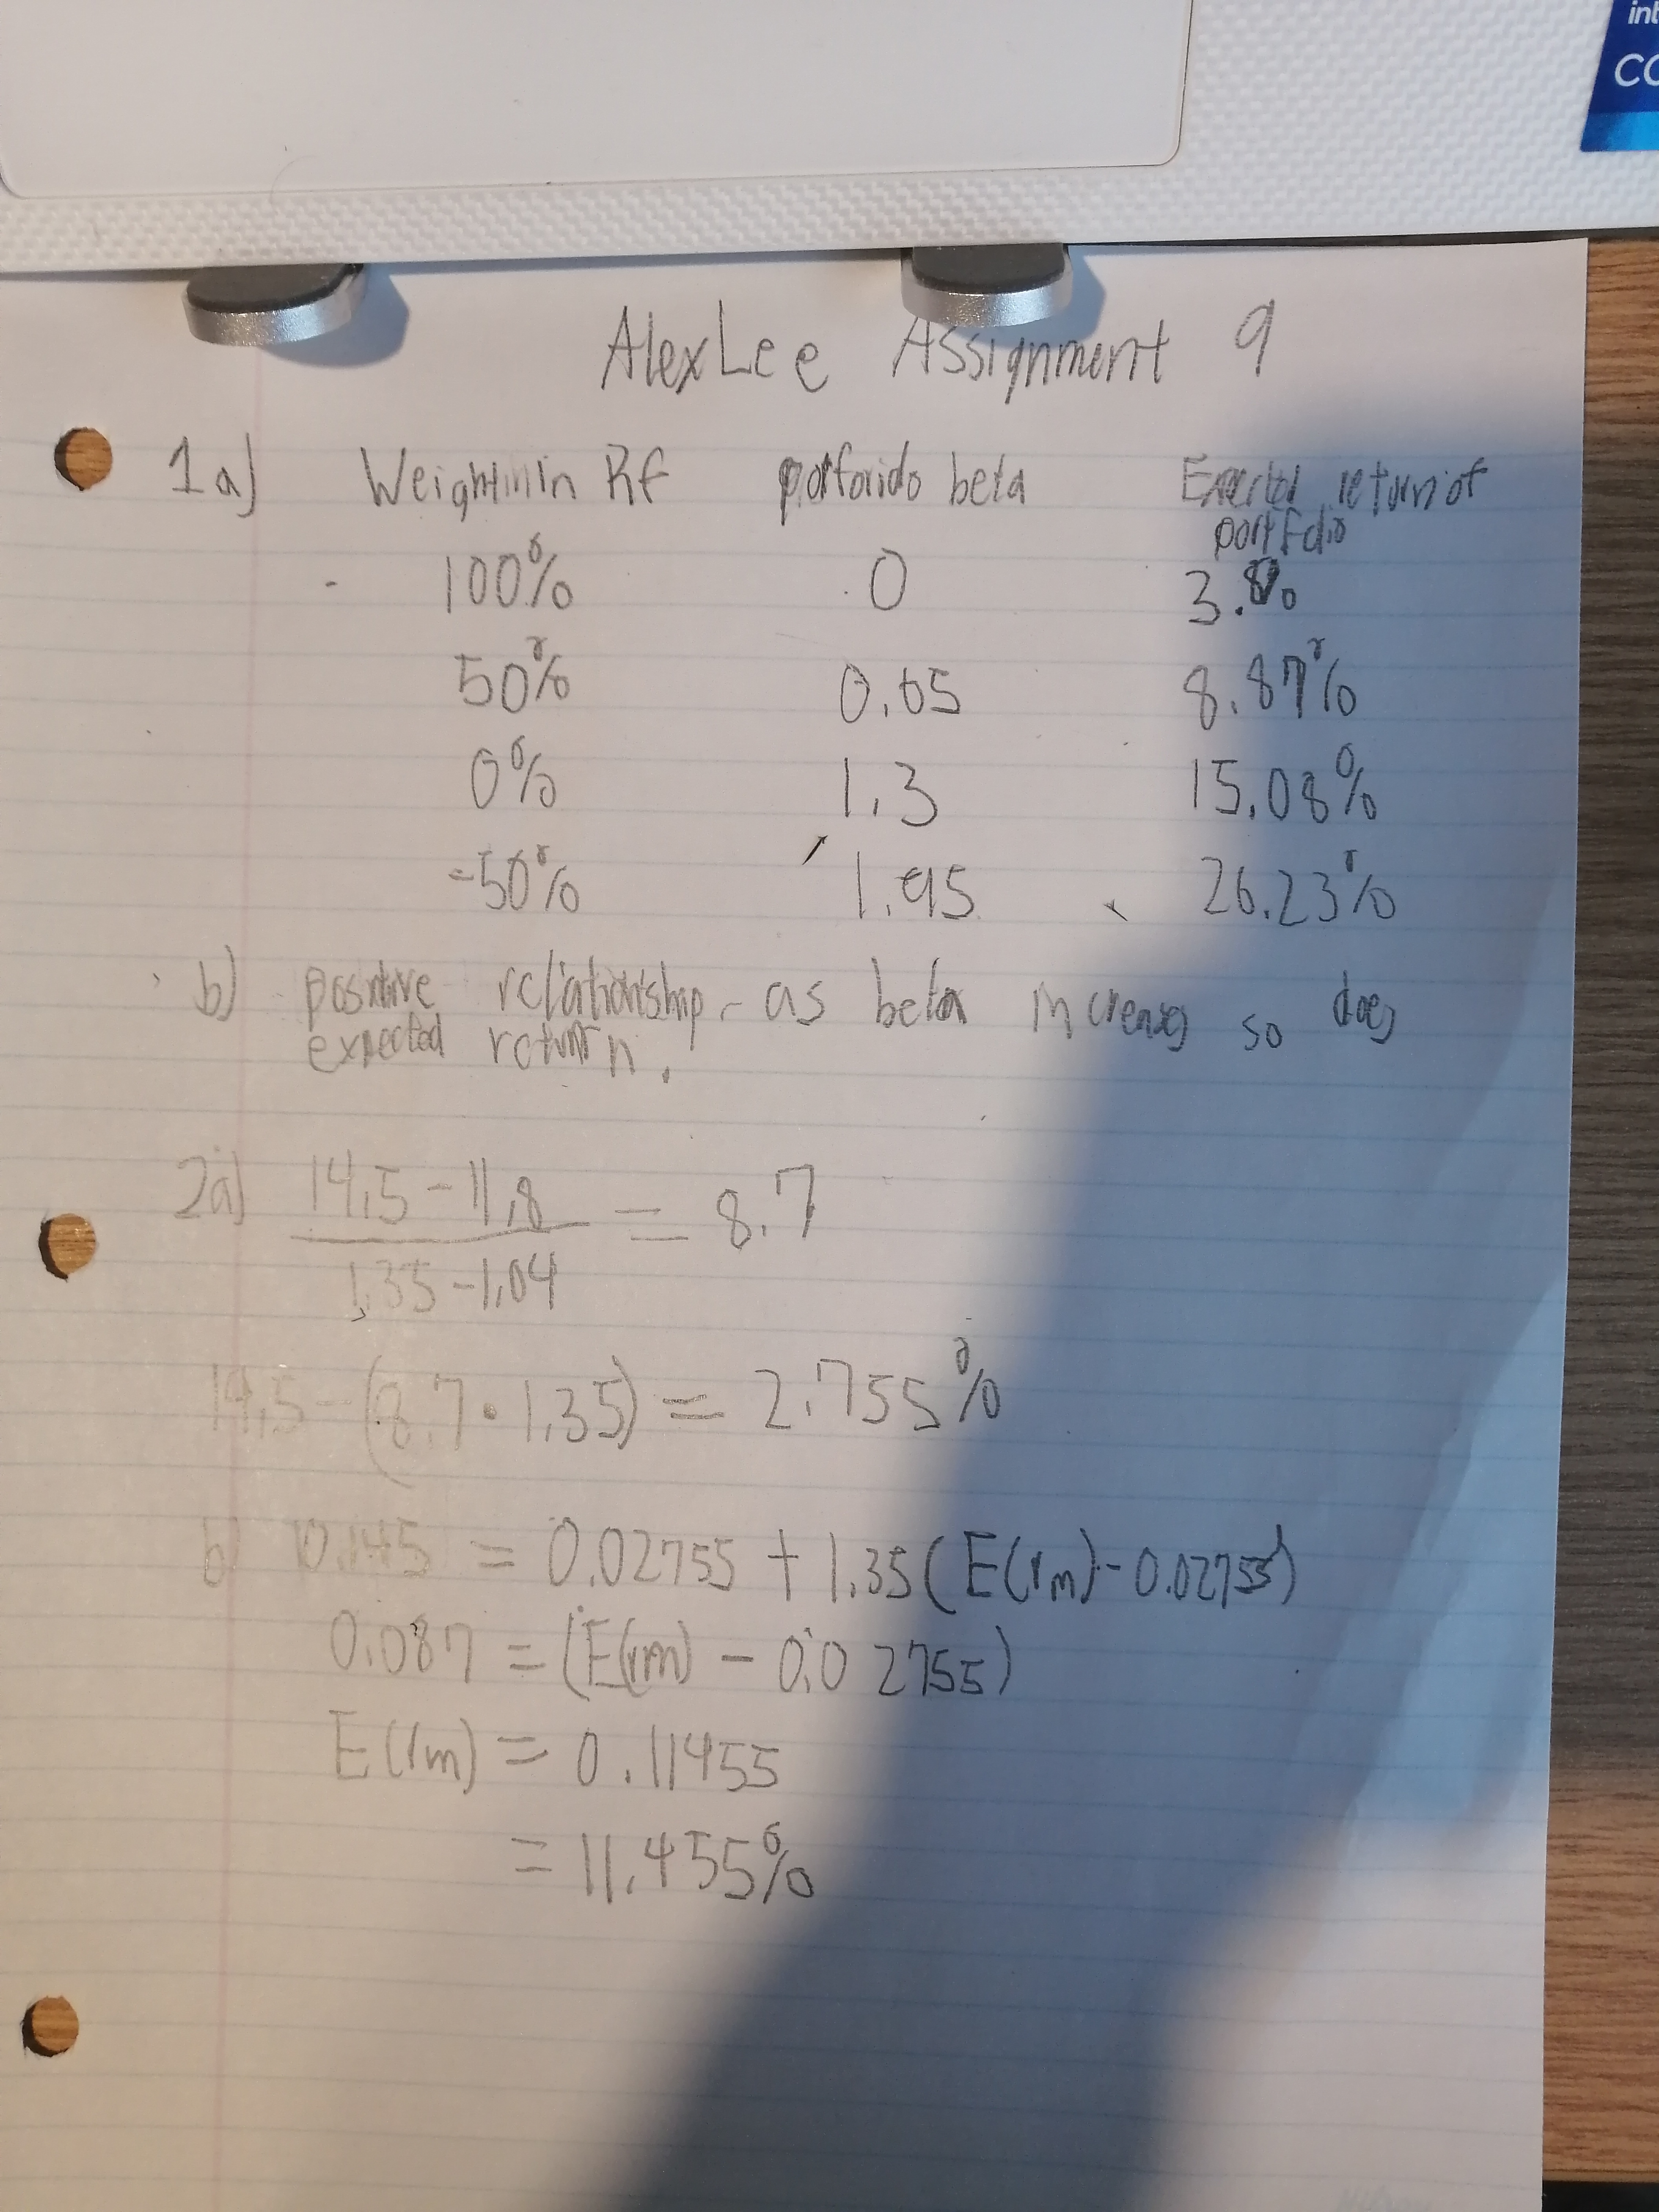 int
CO
Alex Lee Assignment 9
1a) Weight in Rf portforido beta Expected return of
portfolio
100% 0 3.8%
50% 0.65 8.87%
0% 1.3 15.08%
-50% 1.95 26.23%
b) positive relationship - as beta increases so does
expected return.
2a) 14.5 - 11.8 = 8.7
1.35 - 1.04
14.5 - (8.7 · 1.35) = 2.755%
b) 0.145 = 0.02755 + 1.35 (E(rm) - 0.02755)
0.087 = (E(rm) - 0.02755)
E(rm) = 0.11455
= 11.455%